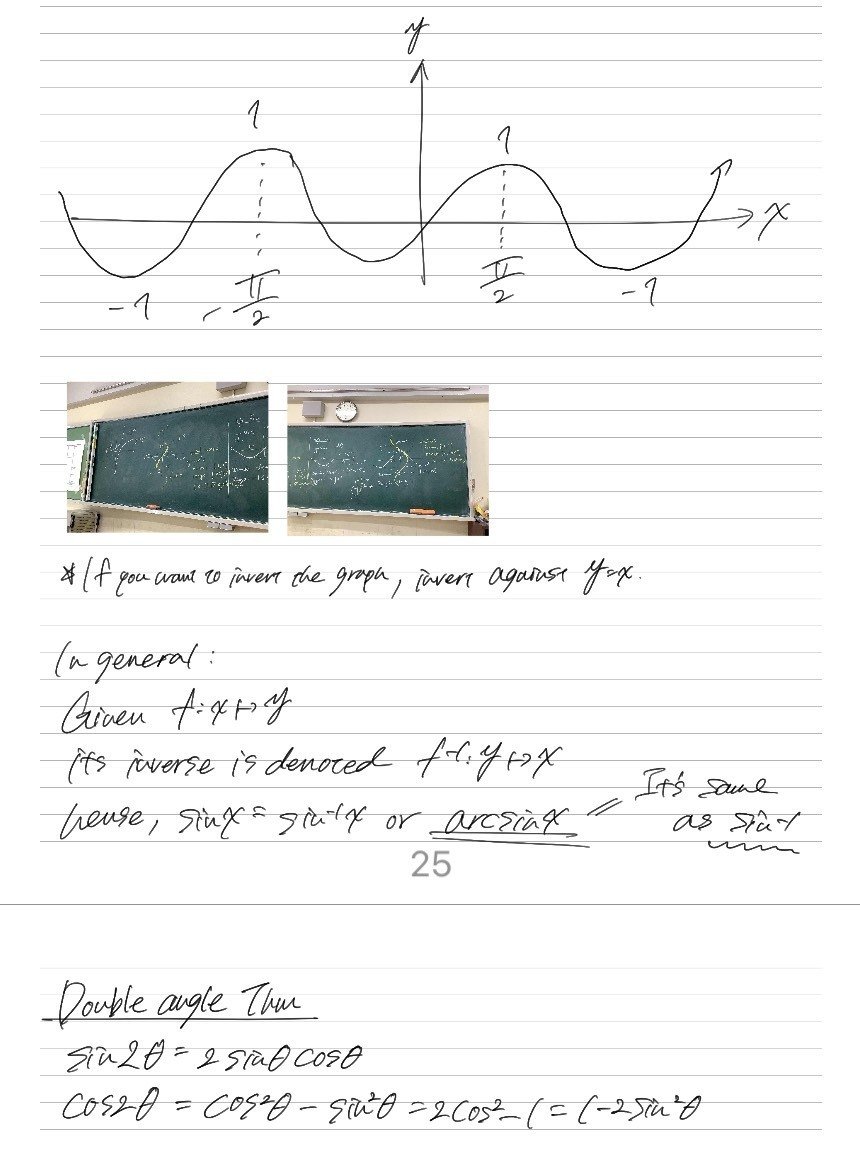 y
1
1
x
-1
- π/2
π/2
-1
* If you want to invert the graph, invert against y=x.
In general:
Given f: x ↦ y
its inverse is denoted f⁻¹: y ↦ x
hense, sinx = sin⁻¹x or arcsinx
It's same
as sin⁻¹
25
Double angle Thm
sin2θ = 2 sinθ cosθ
cos2θ = cos²θ - sin²θ = 2cos² - 1 = 1 - 2sin²θ